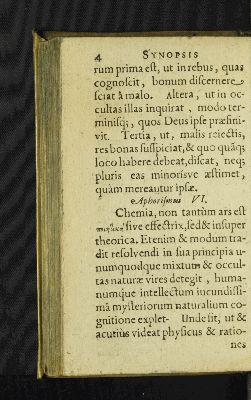 4 SYNOPSIS
rum prima est, ut in rebus, quas
cognoscit, bonum discernere
sciat à malo. Altera, ut in oc-
cultas illas inquirat, modo ter-
minisq;, quos Deus ipse præfini-
vit. Tertia, ut, malis reiectis,
res bonas suspiciat, & quo quāq;
loco habere debeat, discat, neq;
pluris eas minorisve æstimet,
quàm mereantur ipsæ.
Aphorismus VI.
Chemia, non tantùm ars est
sive effectrix, sed & insuper
theorica. Etenim & modum tra-
dit resolvendi in sua principia u-
numquodque mixtum & occul-
tas naturæ vires detegit, huma-
numque intellectum iucundissi-
mâ mysteriorum naturalium co-
gnitione explet. Unde fit, ut &
acutiùs videat physicus & ratio-
nes